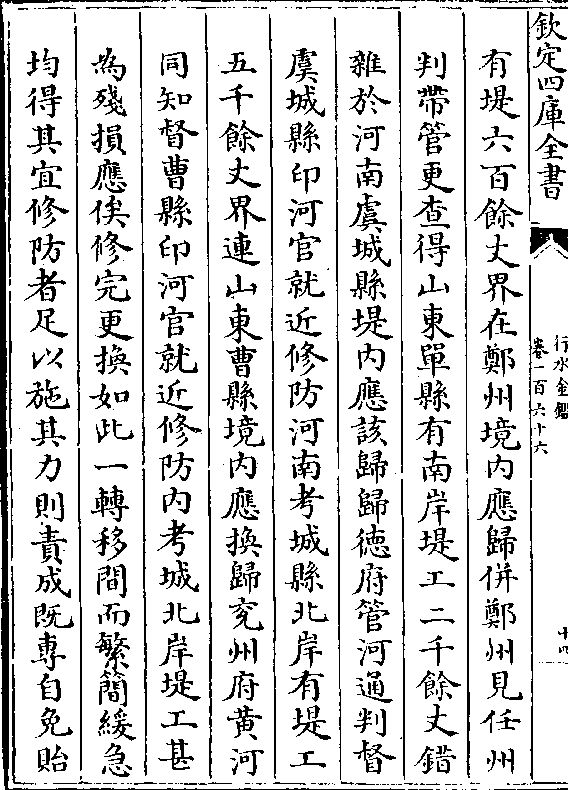 欽定四庫全書
行水金鑑
卷一百六十六
十四
有堤六百餘丈界在鄭州境内應歸併鄭州見任州
判帶管更查得山東單縣有南岸堤工二千餘丈錯
雜於河南虞城縣堤内應該歸歸徳府管河通判督
虞城縣印河官就近修防河南考城縣北岸有堤工
五千餘丈界連山東曹縣境内應換歸兖州府黄河
同知督曹縣印河官就近修防内考城北岸堤工甚
為殘損應俟修完更換如此一轉移間而繁簡緩急
均得其宜修防者足以施其力則責成既專自免貽